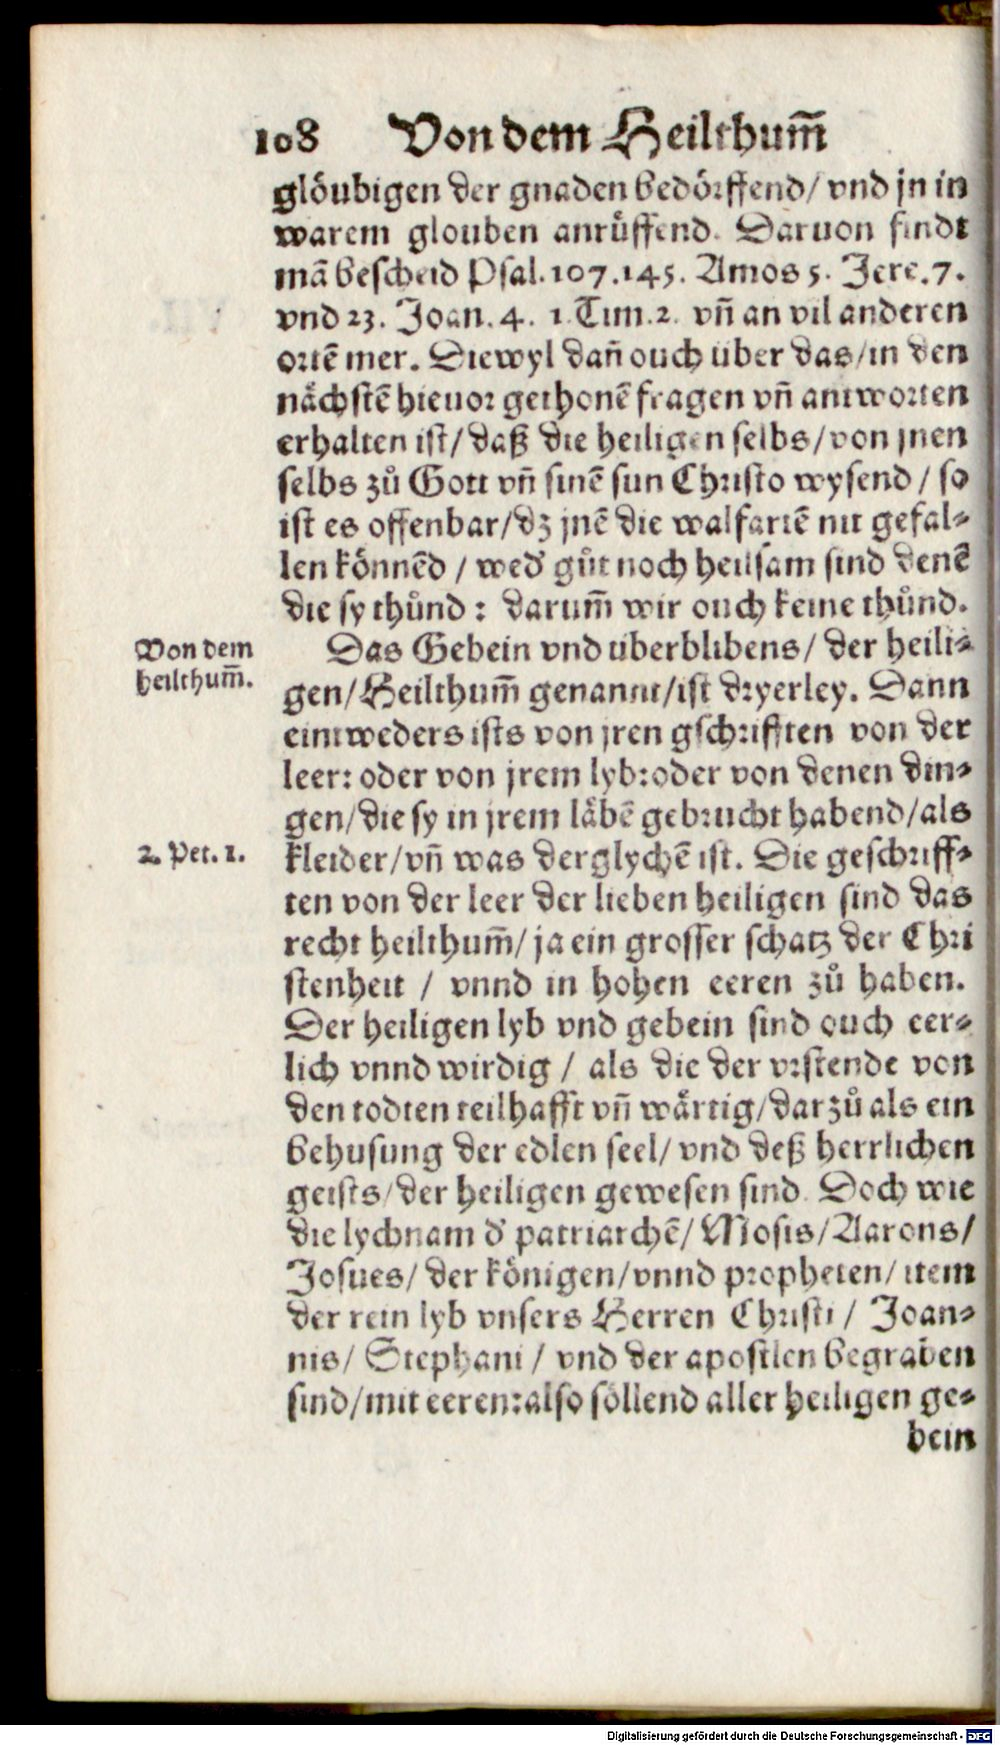 108 Von dem Heilthum̃
glöubigen der gnaden bedörffend/ vnd jn in
warem glouben anrůffend. Daruon findt
mā bescheid Psal.107.145. Amos 5. Jere.7.
vnd 23. Joan.4. 1 Tim.2. vñ an vil anderen
ortē mer. Diewyl dañ ouch über das/in den
nächstē hieuor gethonē fragen vñ antworten
erhalten ist/ daß die heiligen selbs/von jnen
selbs zů Gott vñ sinē sun Christo wysend / so
ist es offenbar/dz jnē die walfartē nit gefal-
len könnēd / wed' gůt noch heilsam sind denē
die sy thůnd : darum̃ wir ouch keine thůnd.
Von dem
heilthum̃.
Das Gebein vnd überblibens/ der heili-
gen/Heilthum̃ genannt/ist dryerley. Dann
eintweders ists von jren gschrifften von der
leer: oder von jrem lyb:oder von denen din-
gen/die sy in jrem läbē gebrucht habend/als
2. Pet. 1.
kleider/vñ was derglychē ist. Die geschriff-
ten von der leer der lieben heiligen sind das
recht heilthum̃/ ja ein grosser schatz der Chri
stenheit / vnnd in hohen eeren zů haben.
Der heiligen lyb vnd gebein sind ouch eer-
lich vnnd wirdig / als die der vrstende von
den todten teilhafft vñ wärtig/darzů als ein
behusung der edlen seel/ vnd deß herrlichen
geists/der heiligen gewesen sind. Doch wie
die lychnam d' patriarchē/ Mosis/Aarons/
Josues/ der königen/vnnd propheten/ item
der rein lyb vnsers Herren Christi / Joan-
nis/ Stephani / vnd der apostlen begraben
sind/mit eeren:also söllend aller heiligen ge-
bein
Digitalisierung gefördert durch die Deutsche Forschungsgemeinschaft - DFG